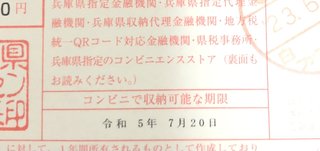 兵庫県指定金融機関・兵庫県指定代理金
0円
融機関・兵庫県収納代理金融機関・地方税
統一QRコード対応金融機関・県税事務所・
兵庫県指定のコンビニエンスストア（裏面も
お読みください。）
コンビニで収納可能な期限
令和 5年 7月20日
に対して、1年間所有されるものとして作成しており